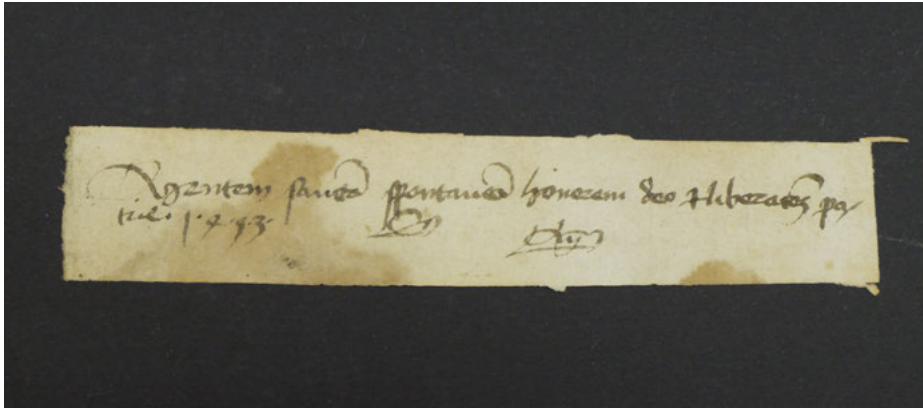 Mentem sanctā spontaneā honorem deo & liberatōeȝ pa/
trie. 1.4.93.